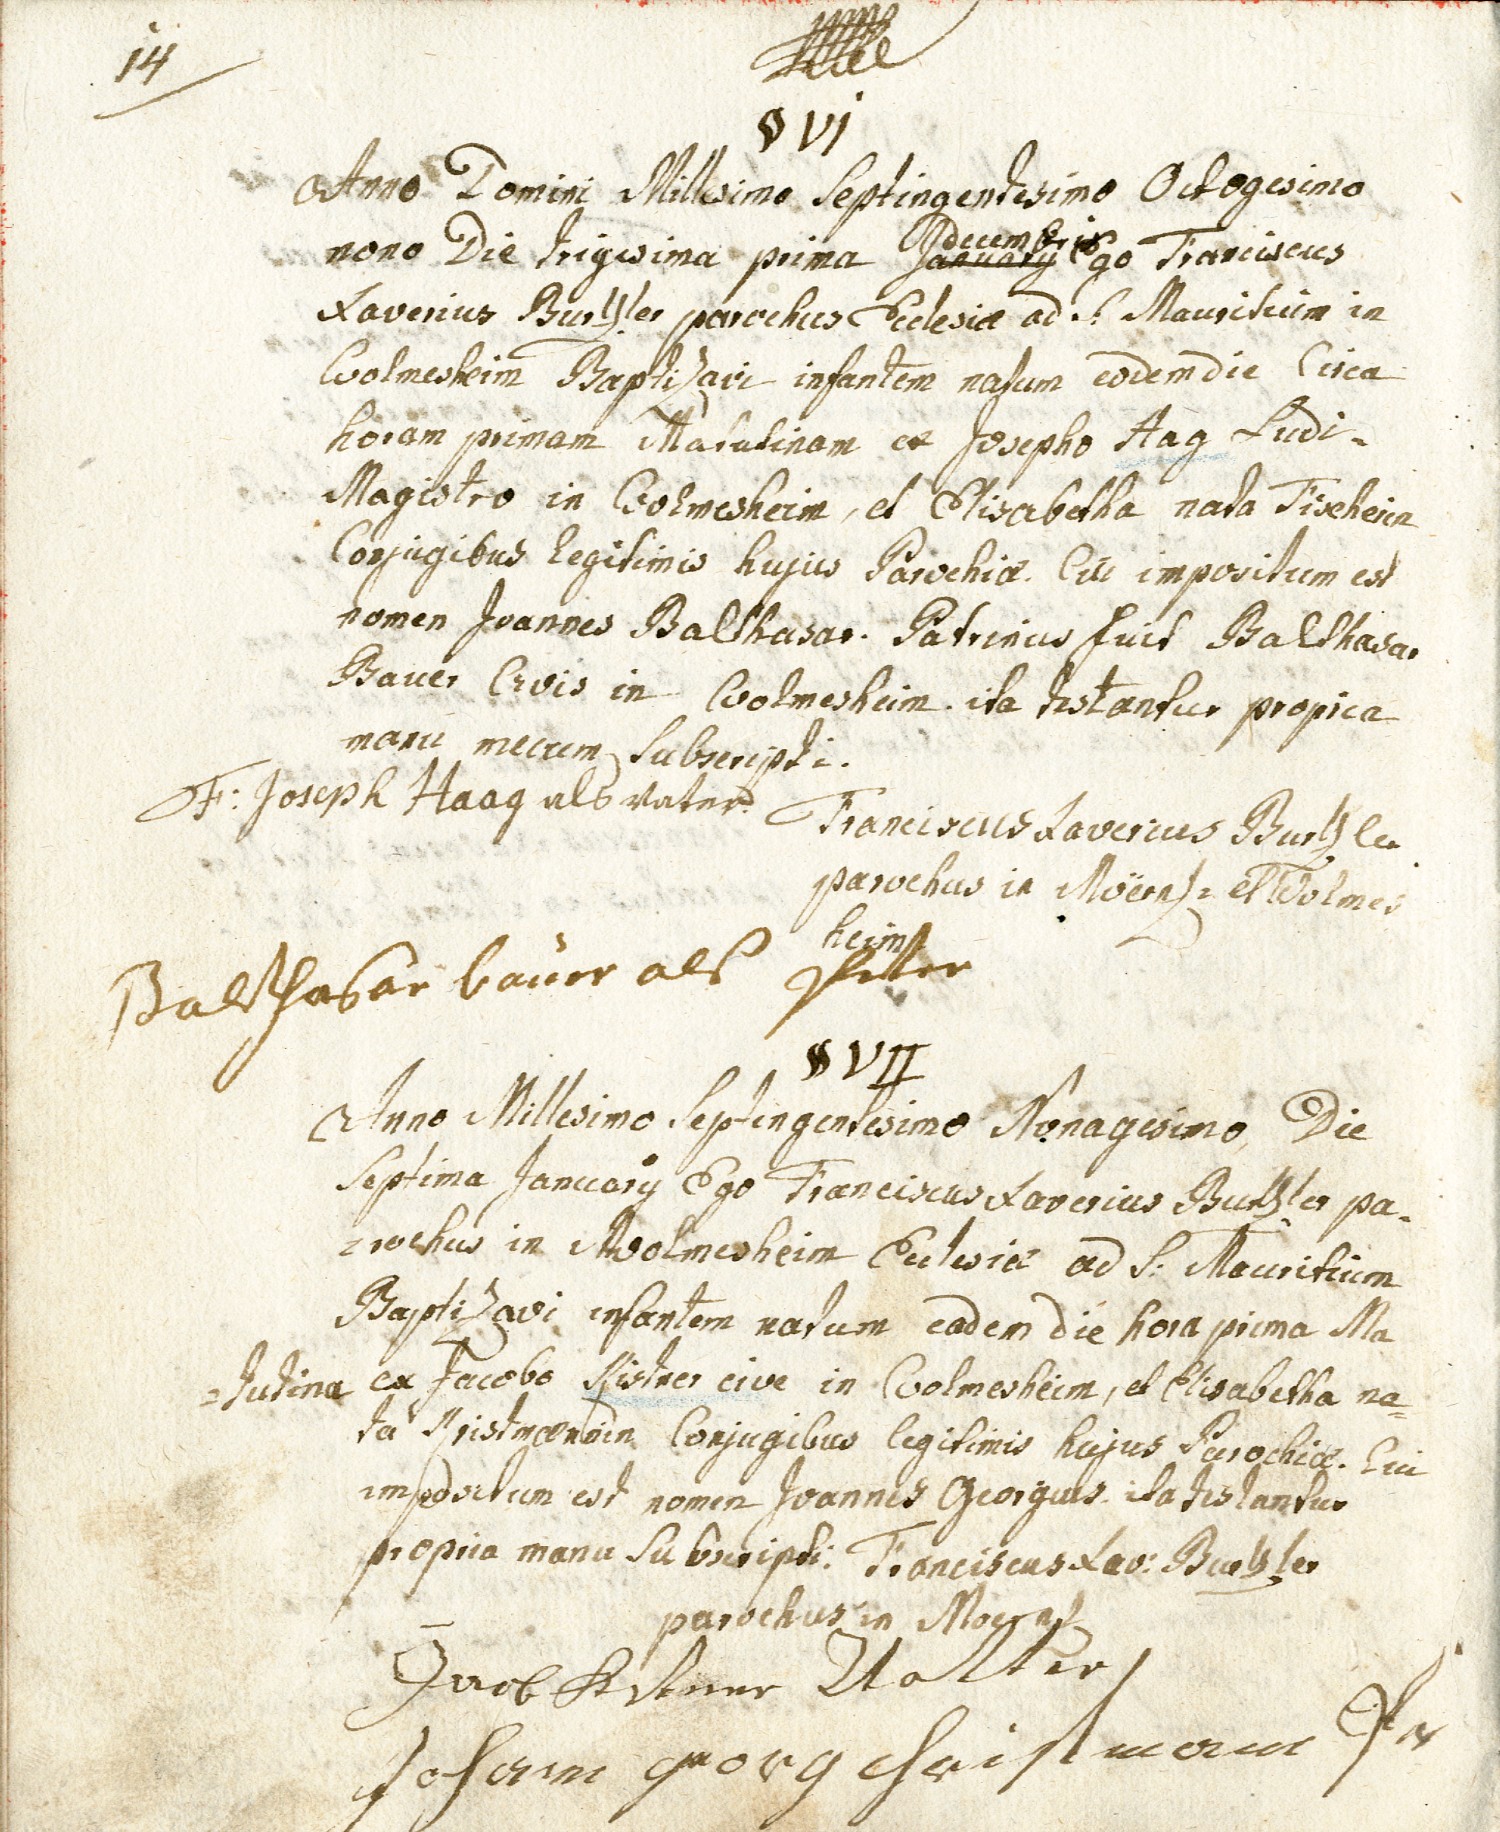 14
§ VI
Anno Domini Millesimo Septingentesimo Octogesimo
nono Die trigesima prima January decembris Ego Franciscus
Xaverius Burtzler parochus Eclesiæ ad S: Mauritium in
Wolmesheim Baptizavi infantem natum eodem die Circa
horam primam Matutinam ex Josepho Hag Ludi-
Magistro in Wolmesheim, et Elisabetha nata Fischerin
Conjugibus legitimis hujus Parochiæ. Cui impositum est
nomen Joannes Balthasar. Patrinus fuit Balthasar
Bauer Civis in Wolmesheim. ita testantur propria
manu mecum Subscripti.
F: Joseph Haag als vater
Franciscus Xaverius Burtzler
parochus in Möerz= et Wolmes
heim
Balthasar bauer als Peter
§ VII
Anno Millesimo Septingentesimo Nonagesimo, Die
Septima January Ego Franciscus Xaverius Burtzler pa-
rochus in Wolmesheim Eclesiæ ad S: Mauritium
Baptizavi infantem natum eadem die hora prima Ma
=tutina ex Jacobo Kistner cive in Wolmesheim, et Elisabetha na=
ta Kristmannin Conjugibus legitimis hujus Parochiæ. Cui
impositum est nomen Joannes Georgius. ita testantur
propria manu Subscripti: Franciscus Xav: Burtzler
parochus in Moerz
Jacob Kistner Vatter
Johann georg christmann